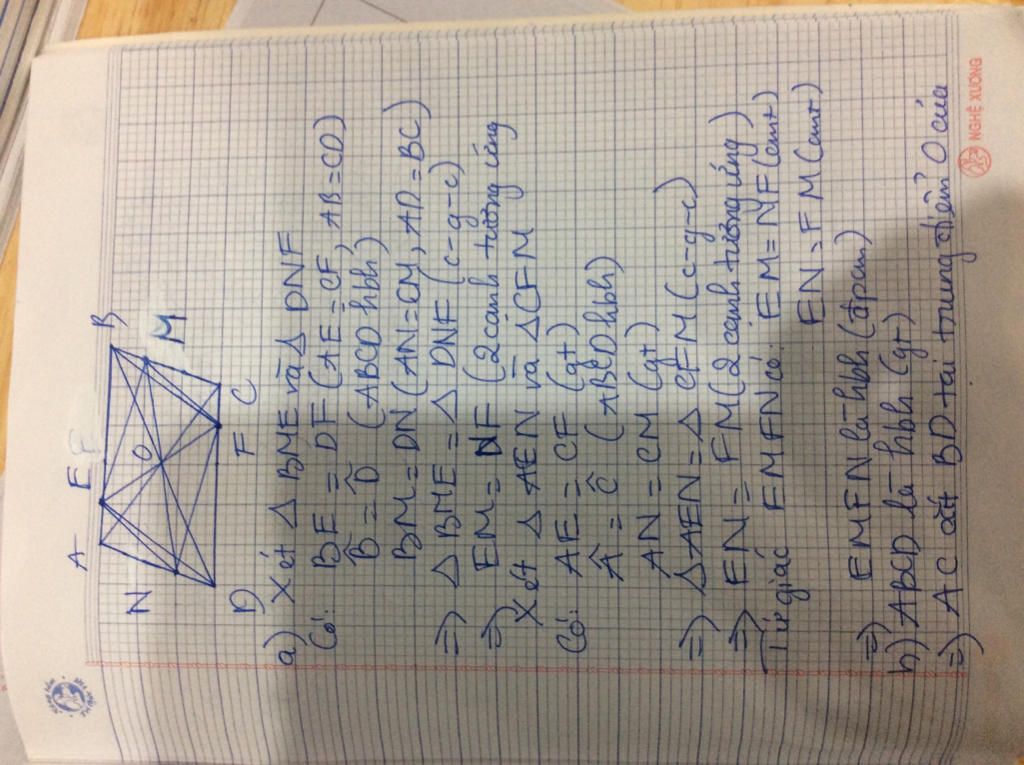 A E B
N O M
D F C
a) Xét Δ BME và Δ DNF
Có: BE = DF (AE = CF, AB = CD)
B̂ = D̂ (ABCD hbh)
BM = DN (AN = CM, AD = BC)
=> Δ BME = Δ DNF (c-g-c)
=> EM = NF (2 cạnh tương ứng
Xét Δ AEN và Δ CFM
Có: AE = CF (gt)
Â = Ĉ (ABCD hbh)
AN = CM (gt)
=> ΔAEN = Δ CFM (c-g-c)
=> EN = FM (2 cạnh tương ứng)
Tứ giác EMFN có: EM = NF (cmt)
EN = FM (cmt)
=> EMFN là hbh (đpcm)
b) ABCD là hbh (gt)
=> AC cắt BD tại trung điểm O của
NGHỆ XƯƠNG